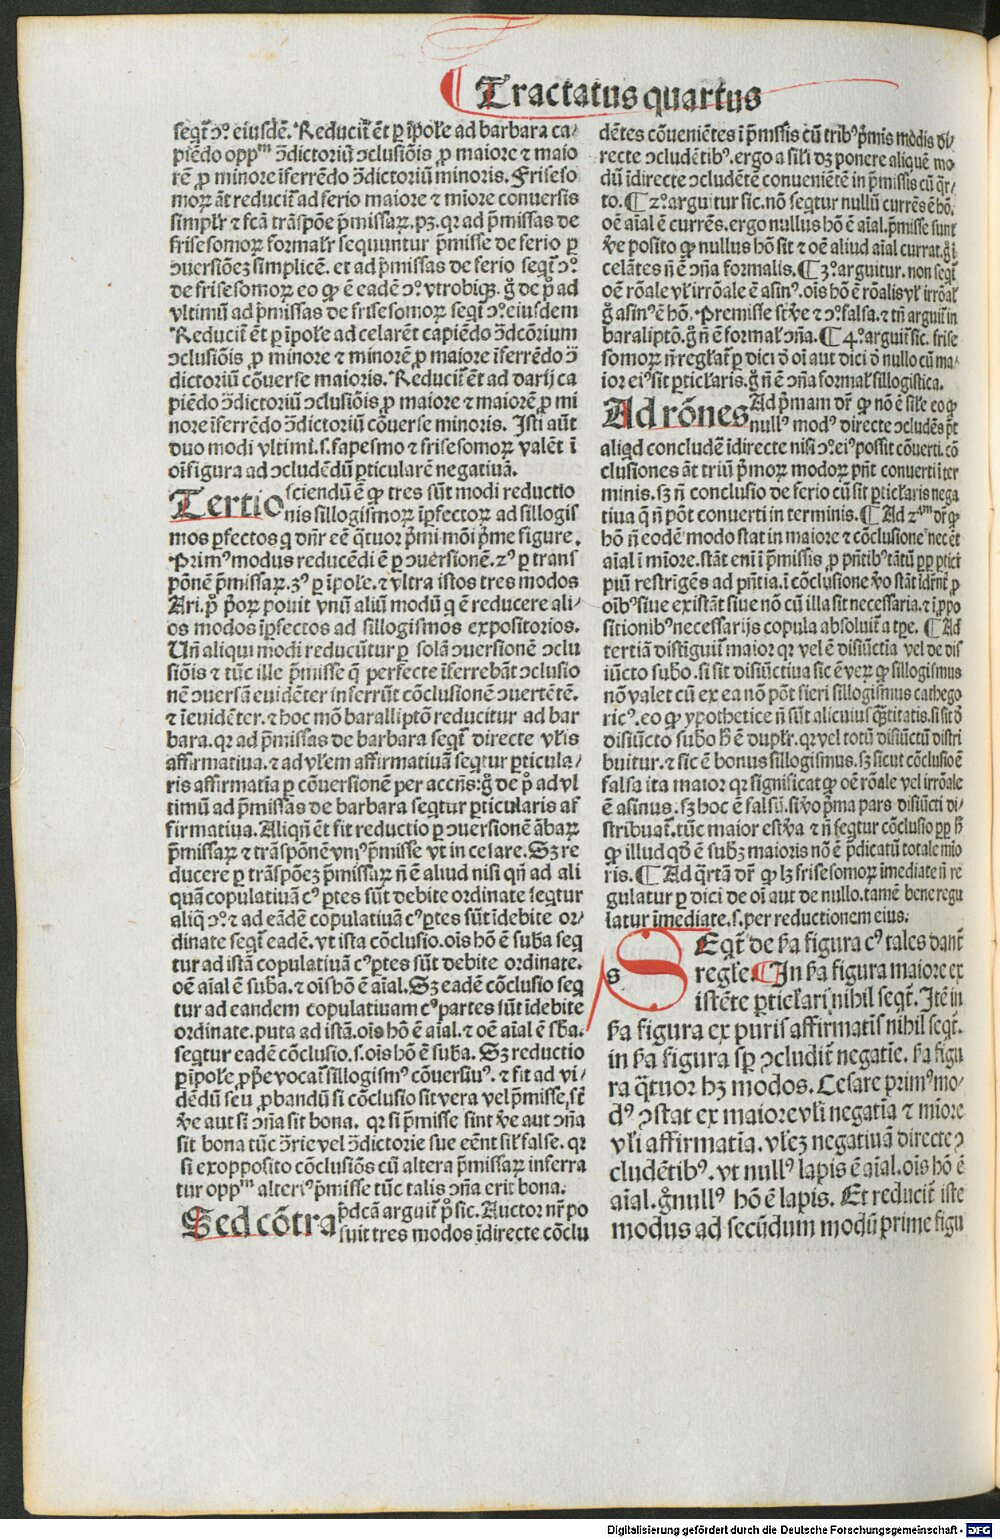 Tractatus quartus
seqt̃ ↄ͛. eiusdē. Reduci᷑ ēt ꝑ ĩpoſſe ad barbara ca⸗
piēdo opp̃ᵐ ↄ̃dictoriũ ↄcluſiõis ꝓ maiore ⁊ maio
rē ꝓ minore ĩferrēdo ↄ̃dictoriũ minoris. Friſeſo
moꝝ āt reduci᷑ ad ferio maiore ⁊ mĩore conuerſis
ſimpłr ⁊ fcā trāſpõe p̃miſſaꝝ. pꝫ. qꝛ ad p̃miſſas de
friſeſomoꝝ formałr ſequuntur p̃miſſe de ferio ꝑ
ↄuerſiõeꝫ ſimplicē. et ad p̃miſſas de ferio ſeqt̃ ↄ͛.
de friſeſomoꝝ eo ꝙ ē eadē ↄ͛. vtrobiqꝫ. g̊ de p̊ ad
vltimũ ad p̃miſſas de friſeſomoꝝ ſeqt̃ ↄ͛. eiusdem
Reduci᷑ ēt ꝑ ĩpoſſe ad celarēt capiēdo ↄ̃dcõrium
ↄcluſiõis ꝓ minore ⁊ minorē ꝓ maiore ĩferrēdo ↄ̃
dictoriũ cõuerſe maioris. Reduci᷑ ēt ad darij ca
piēdo ↄ̃dictoriũ ↄcluſiõis ꝓ maiore ⁊ maiorē ꝓ mi
nore ĩferrēdo ↄ̃dictoriũ cõuerſe minoris. Iſti aũt
duo modi vltimi. ſ. fapeſmo ⁊ friſeſomoꝝ valēt ĩ
oĩ figura ad ↄcludēdũ ꝑticularē negatiuā.
Tertio ſciendũ ē ꝙ tres ſũt modi reductio
nis ſillogiſmoꝝ ĩꝑfectoꝝ ad ſillogiſ
mos ꝑfectos q dn̄r eē q̃tuor p̃mi mõi p̃me figure.
Prim⁹ modus reducēdi ē ꝑ ↄuerſionē. z⁹ ꝑ tranſ
põnē p̃miſſaꝝ. 3⁹ ꝑ ĩpoſſe. ⁊ vltra iſtos tres modos
Ari. p̊ p̊oꝝ ponit vnũ aliũ modũ q ē reducere ali⸗
os modos ĩꝑfectos ad ſillogiſmos expoſitorios.
Vñ aliqui modi reducũtur ꝑ ſolā ↄuerſionē ↄclu
ſiõis ⁊ tũc ille p̃miſſe q̃ perfecte ĩferrebãt ↄcluſio
nē ↄuerſā euidēter inferrũt cõcluſionē ↄuertētē.
⁊ ĩeuidēter. ⁊ hoc mõ baralliptõ reducitur ad bar
bara. qꝛ ad p̃miſſas de barbara ſeqt̃ directe vłis
affirmatiua. ⁊ ad vłem affirmatiuā ſeqtur ꝑticula⸗
ris affirmatĩa ꝑ cõuerſionē per accñs: g̊ de p̊ ad vl
timũ ad p̃miſſas de barbara ſeqtur ꝑticularis af
firmatiua. Aliqñ ēt fit reductio ꝑ ↄuerſionē ābaꝝ
p̃miſſaꝝ ⁊ trāſpõnē vni⁹ p̃miſſe vt in ceſare. Sꝫ re
ducere ꝑ trāſpõeꝫ p̃miſſaꝝ ñ ē aliud niſi qñ ad ali
quā copulatiuā c⁹ ꝑtes ſũt debite ordinate ſeqtur
aliq̃ ↄ͛. ⁊ ad eādē copulatiuā c⁹ ꝑtes ſũt ĩdebite or⸗
dinate ſeqt̃ eadē. vt iſta cõcluſio. ois hõ ē ſuba ſeq
tur ad iſtā copulatiuā c⁹ ꝑtes ſũt debite ordinate.
oē aĩal ē ſuba. ⁊ ois hõ ē aĩal. Sꝫ eadē cõcluſio ſeq
tur ad eandem copulatiuam c⁹ partes ſũt ĩdebite
ordinate. puta ad iſtā. ois hõ ē aĩal. ⁊ oē aĩal ē ſba.
ſeqtur eadē cõcluſio. ſ. ois hõ ē ſuba. Sꝫ reductio
ꝑ ĩpoſſe ꝓp̃e vocat̃ ſillogiſm⁹ cõuerſiu⁹. ⁊ fit ad vi⸗
dēdũ ſeu ꝓbandũ ſi cõcluſio ſit vera vel p̃miſſe ſĩt
v̊e aut ſi ↄña ſit bona. qꝛ ſi p̃miſſe ſint v̊e aut ↄña
ſit bona tũc ↄ̃rie vel ↄ̃dictorie ſue eēnt ſił falſe. qꝛ
ſi ex oppoſito cõcluſiõs cũ altera p̃miſſaꝝ inferra
tur opp̃ᵐ alteri⁹ p̃miſſe tũc talis ↄña erit bona.
Sed cõtra p̃dcā arguit̃ p̊ ſic. Auctor nr̃ po
ſuit tres modos ĩdirecte cõclu
dētes cõueniētes ĩ p̃miſſis cũ trib⁹ p̃mis modis di⸗
recte ↄcludētib⁹. ergo a ſiłi dꝫ ponere aliquē mo
dũ ĩdirecte ↄcludētē conueniētē in p̃miſſis cũ q̃r⸗
to. ¶ Z͛. arguitur ſic. nõ ſeqtur nullũ currēs ē hõ.
oē aĩal ē currēs. ergo nullus hõ ē aĩal. p̃miſſe ſunt
v̊e poſito ꝙ nullus hõ ſit ⁊ oē aliud aĩal currat. g̊ ĩ
celātes ñ ē ↄña formalis. ¶ 3͛. arguitur. non ſeqt̃
oē rõale vł irrõale ē aſin⁹. ois hõ ē rõalis vł irrõał
g̊ aſin⁹ ē hõ. Premiſſe ſt̃ v̊e ⁊ ↄ͛. falſa. ⁊ tñ arguit̃ in
baraliptõ. g̊ ñ ē formał ↄña. ¶ 4͛. arguit̃ ſic. friſe
ſomoꝝ ñ regłat̃ ꝑ dici ō oĩ aut dici ō nullo cũ ma⸗
ior ei⁹ ſit ꝑticłaris. g̊ ñ ē ↄña formał ſillogiſtica.
Ad rõnes Ad p̃mam dr̃ ꝙ nõ ē ſiłe eo ꝙ
null⁹ mod⁹ directe ↄcludēs p̃t
aliqd concludē ĩdirecte niſi ↄ͛. ei⁹ poſſit cõuerti. cõ
cluſiones āt triũ p̃moꝝ modoꝝ pñt conuerti ĩ ter
minis. ſꝫ ñ concluſio de ferio cũ ſit ꝑticłaris nega
tiua q̃ ñ põt conuerti in terminis. ¶ Ad zᵃᵐ dr̃ ꝙ
hõ ñ eodē modo ſtat in maiore ⁊ cõcluſione nec ēt
aĩal ĩ mĩore. ſtāt eni ĩ p̃miſſis ꝓ pñtib⁹ tātũ ꝓp ꝑtici
piũ reſtrigēs ad pñtia. ĩ cõcluſione v̊o ſtāt ĩdr̃nt̃ ꝓ
oĩb⁹ ſiue exiſtāt ſiue nõ cũ illa ſit neceſſaria. ⁊ ĩ ꝓpo
ſitionib⁹ neceſſarijs copula abſoluit̃ a tꝑe. ¶ Ad
tertiā diſtiguit̃ maior qꝛ vel ē diſiũctia vel de diſ
iũcto ſubo. ſi ſit diſiũctiua ſic ē veꝝ ꝙ ſillogiſmus
nõ valet cũ ex ea nõ põt fieri ſillogiſmus cathego
ric⁹. eo ꝙ ypothetice ñ ſũt alicuius q̃titatis. ſi ſit ō
diſiũcto ſubo h̊ ē dupłr. qꝛ vel totũ diſiũctũ diſtri
buitur. ⁊ ſic ē bonus ſillogiſmus. ſꝫ ſicut cõcluſio ē
falſa ita maior qꝛ ſignificat ꝙ oē rõale vel irrõale
ē aſinus. ſꝫ hoc ē falſũ. ſi v̊o p̃ma pars diſiũcti di⸗
ſtribuat̃. tũc maior eſt v̊a ⁊ ñ ſeqtur cõcluſio ꝓp h̊
ꝙ illud qđ ē ſubꝫ maioris nõ ē p̃dicatũ totale mio
ris. ¶ Ad q̃rtā dr̃ ꝙ lꝫ friſeſomoꝝ ĩmediate ñ re
gulatur ꝑ dici de oĩ aut de nullo. tamē bene regu
latur ĩmediate. ſ. per reductionem eius.
s SEqt̃ de ẜa figura c⁹ tales dant̃
regłe. ¶ In ẜa figura maiore ex
iſtēte ꝑticłari nihil ſeqt̃. Itē in
ẜa figura ex puris affirmatĩs nihil ſeqt̃.
in ẜa figura ſꝑ ↄcludit̃ negatĩe. ẜa figu
ra q̃tuor hꝫ modos. Ceſare prim⁹ mo⸗
d⁹ ↄſtat ex maiore vłi negatĩa ⁊ mĩore
vłi affirmatĩa. vłeꝫ negatiuā directe ↄ
cludētib⁹. vt null⁹ lapis ē aĩal. ois hõ ē
aĩal. g̊ null⁹ hõ ē lapis. Et reduci᷑ iſte
modus ad ſecũdum modũ prime figu
Digitalisierung gefördert durch die Deutsche Forschungsgemeinschaft - DFG